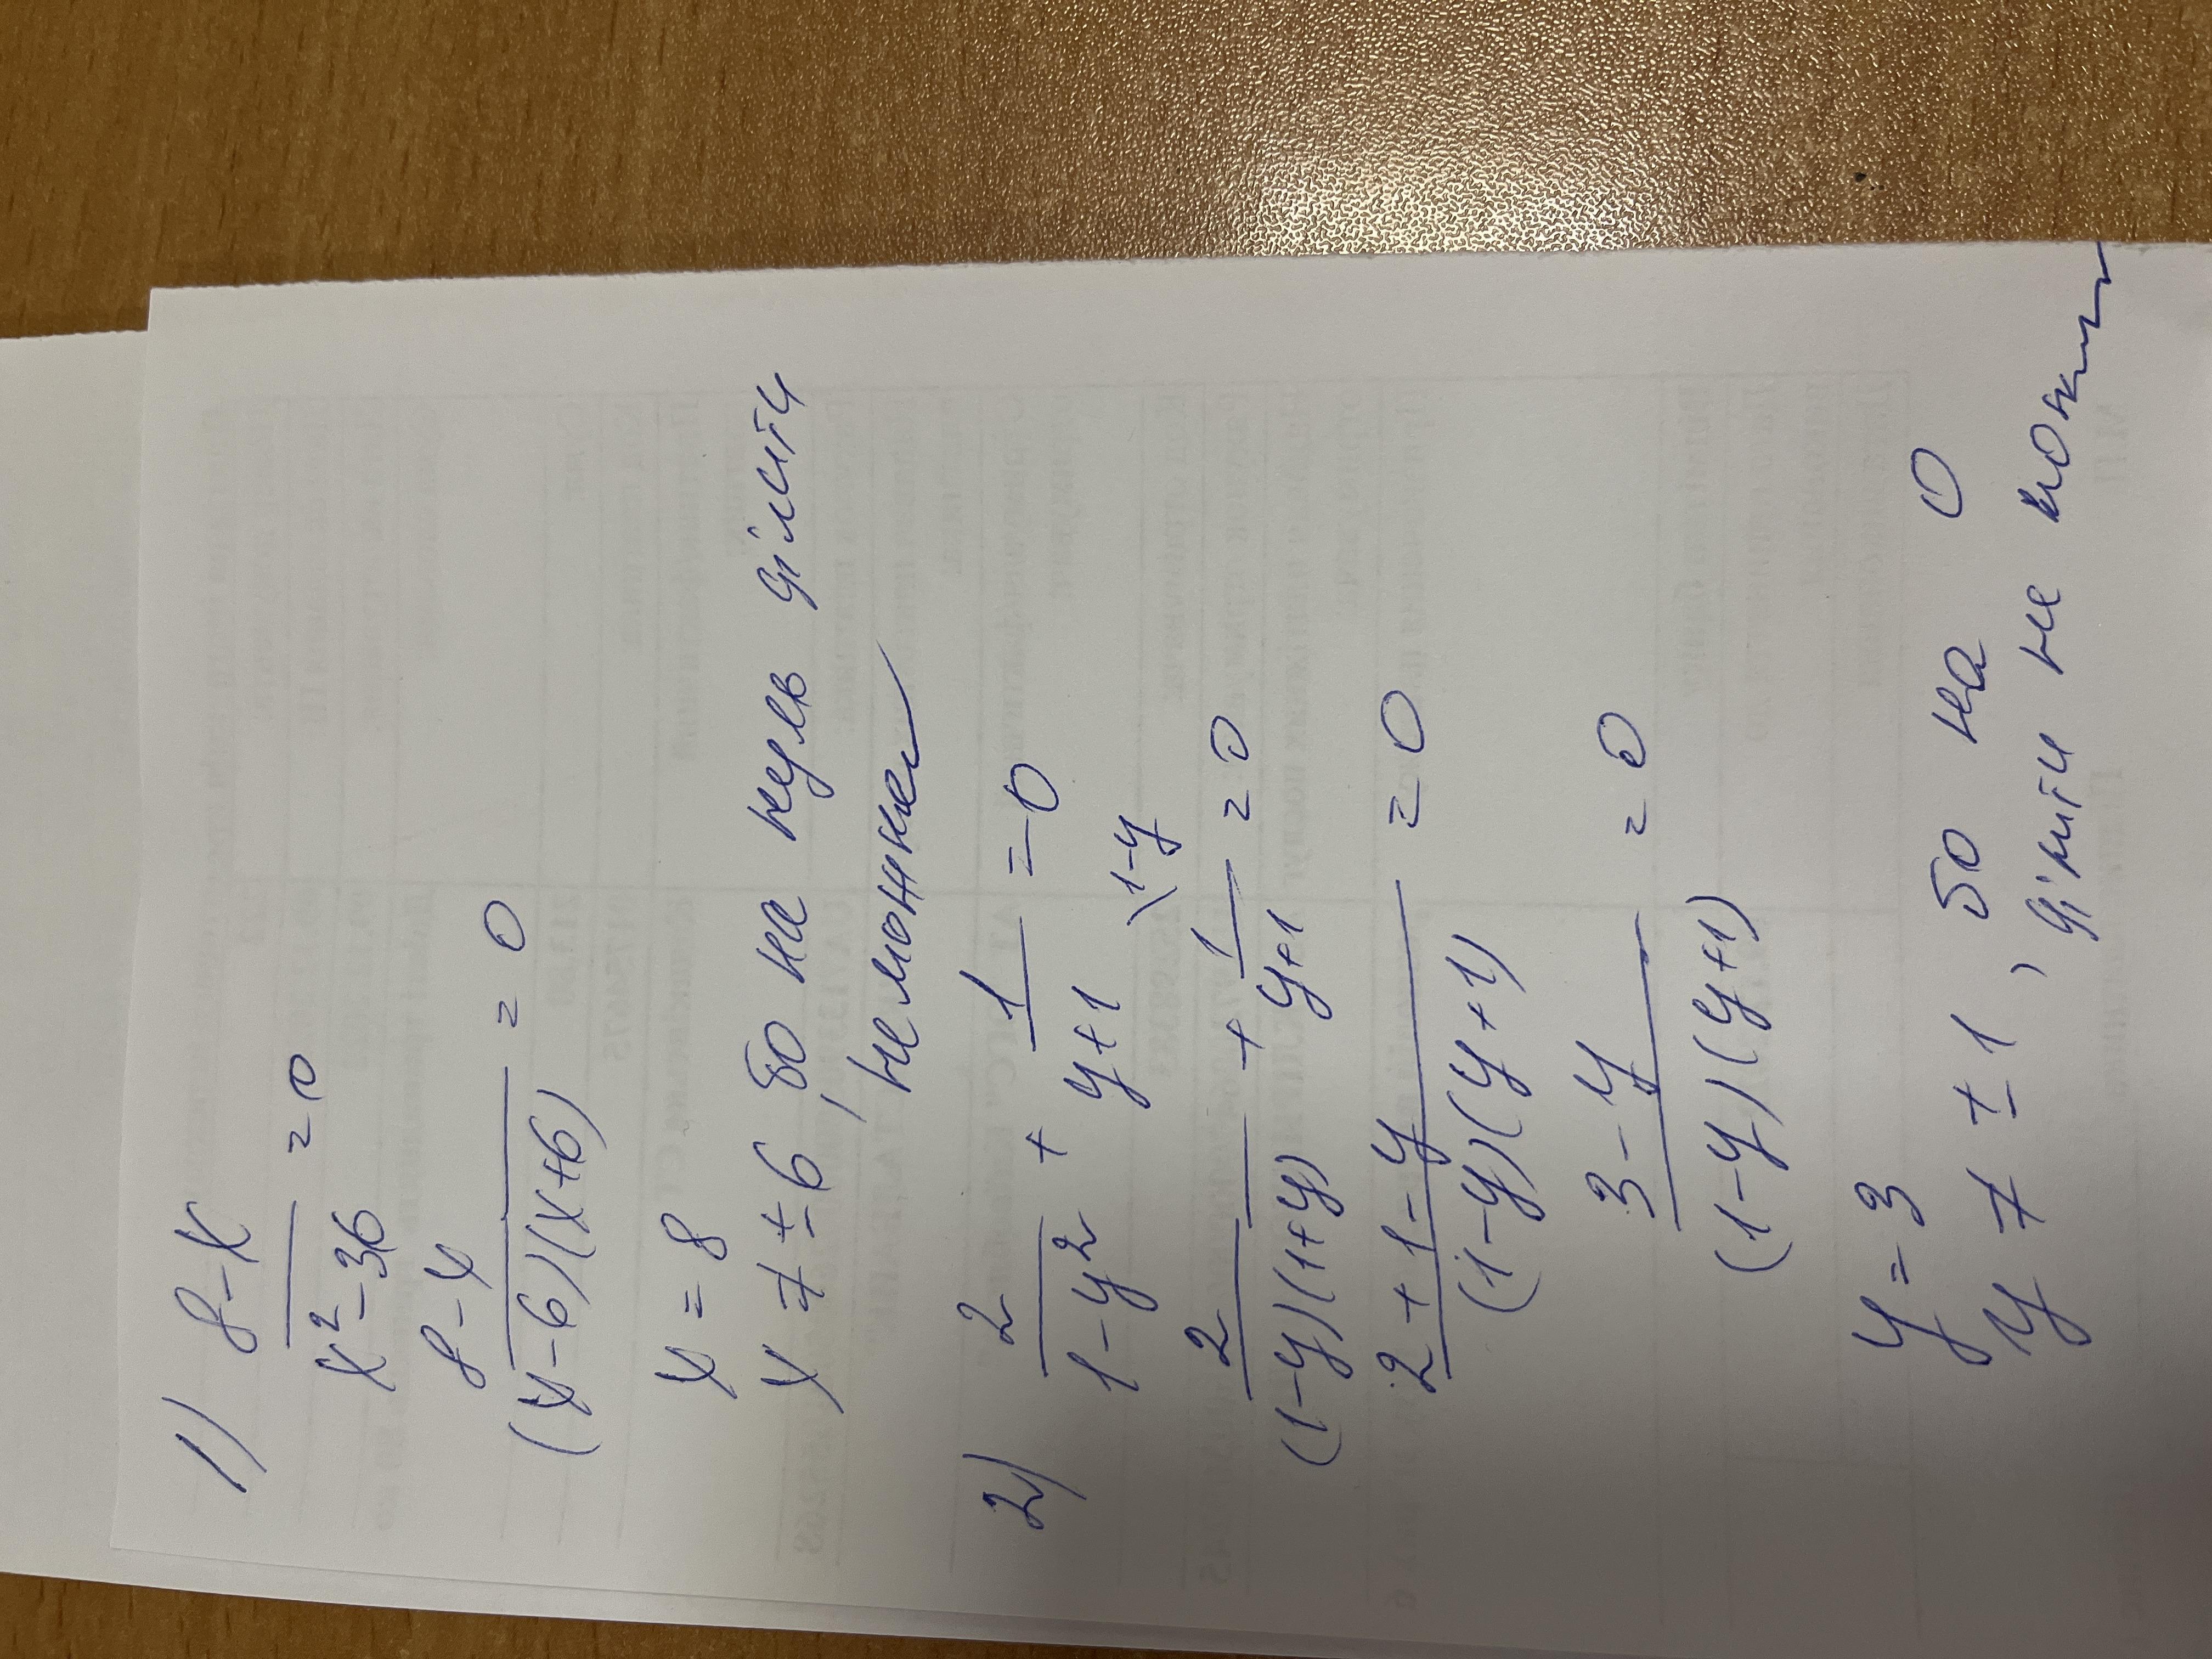 1) 8-x / x²-36 = 0
8-x / (x-6)(x+6) = 0
x = 8
x ≠ ± 6, бо на нуль ділити
не можна
2) 2 / 1-y² + 1 / y+1 = 0
2 / (1-y)(1+y) + 1 \1-y / y+1 = 0
2+1-y / (1-y)(y+1) = 0
3-y / (1-y)(y+1) = 0
y = 3
y ≠ ± 1, бо на 0
ділити не можна